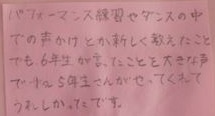 パフォーマンス練習やダンスの中
での声かけとか新しく教えたこと
でも、6年生が言ったことを大きな声
で 5年生さんがやってくれて
うれしかったです。